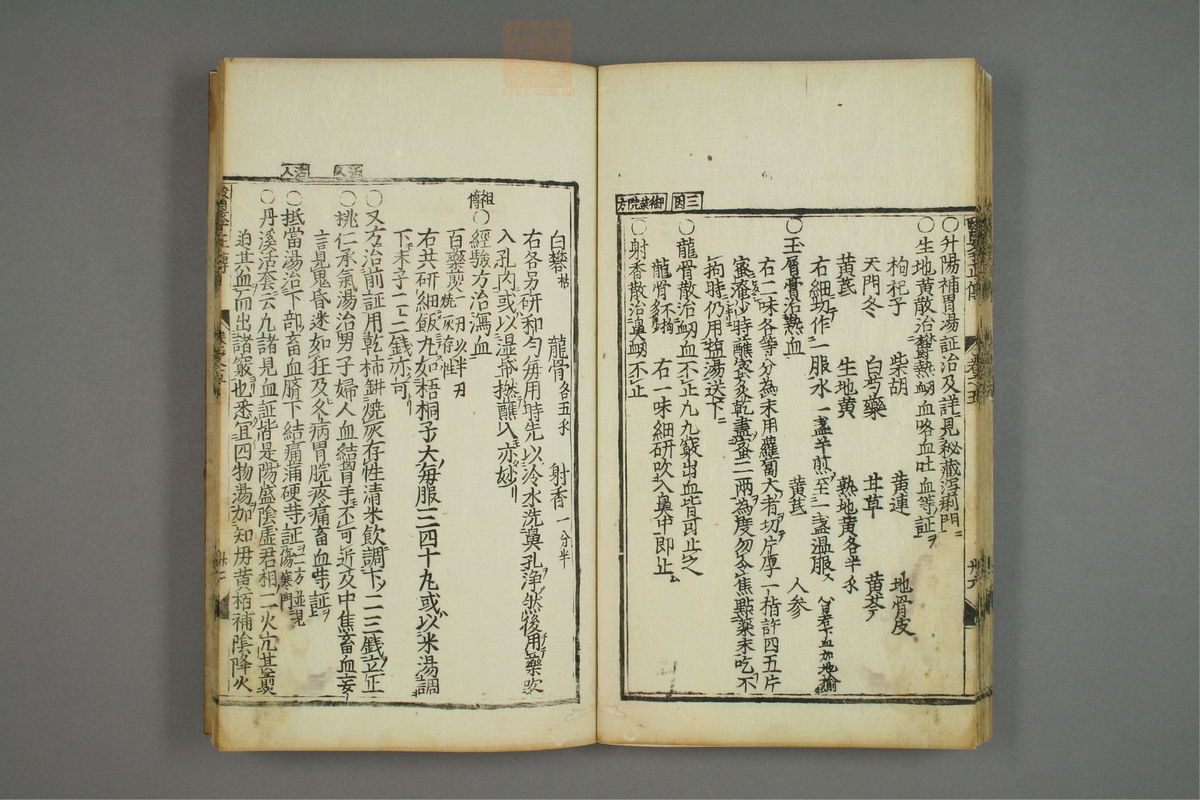 三因
御藥院方
○升陽補胃湯証治及詳見秘藏瀉痢門
○生地黄散治鬱熱衂血咯血吐血等証
枸杞子 柴胡 黄連 地骨皮
天門冬 白芍藥 甘草 黄芩
黄芪 生地黄 熟地黄各半
右細切作一服水一盞半煎至一盞温服 下血加地榆
○玉屑膏治熱血 黄芪 人参
右二味各等分為末用蘿蔔大者切片厚一指許四五片
蜜淹少時蘸蜜炙乾盡蜜二兩為度勿令焦點藥末吃不
拘時仍用塩湯送下
○龍骨散治衂血不止九竅出血皆可止之
龍骨不拘多少 右一味細研吹入鼻中即止
○射香散治鼻衂不止
白礬枯 龍骨各五 射香一分半
右各另研和匀毎用時先以冷水洗鼻孔浄然後用藥吹
入孔内或以湿昏撚蘸入亦妙
祖傳
○經驗方治瀉血
百藥煎一 以半 燒灰存性
右共研細飯丸如梧桐子大毎服三四十丸或以米湯調
下末子一二錢亦可
○又方治前証用乾柿餅燒灰存性清米飲調下二三錢立止
○桃仁承氣湯治男子婦人血結胃手不可近及中焦畜血妄
言見鬼昏迷如狂及久病胃脘疼痛畜血等証
○抵當湯治下部畜血臍下結痛滿硬等証 方並見傷寒門
○丹溪活套云凡諸見血証皆是陽盛陰虚君相二火亢甚
迫其血而出諸竅也悉宜四物湯加知母黄栢補陰降火